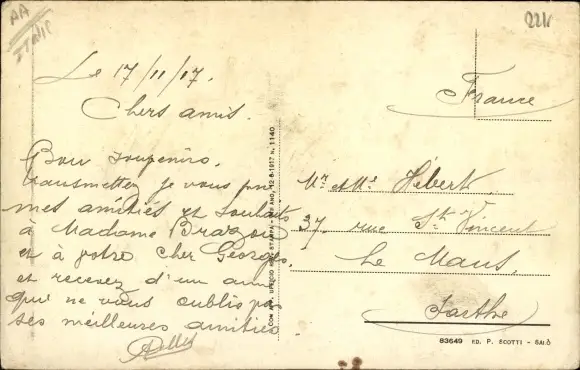 AA
ITALIE
224
Le 17/11/17.
Chers amis.
Bon souvenirs,
transmettez je vous prie
mes amitiés et souhaits
à Madame
et à votre cher Georges,
et recevez d'un ami
qui ne vous oublis pas
ses meilleures amitiés
CON APP. UFFICIO REV. STAMPA - MILANO, 12-6-1917 N. 1140
France
Mr et Me Hébert,
37. rue St Vincent
Le Mans,
Sarthe
83649 ED. P. SCOTTI - SALÒ